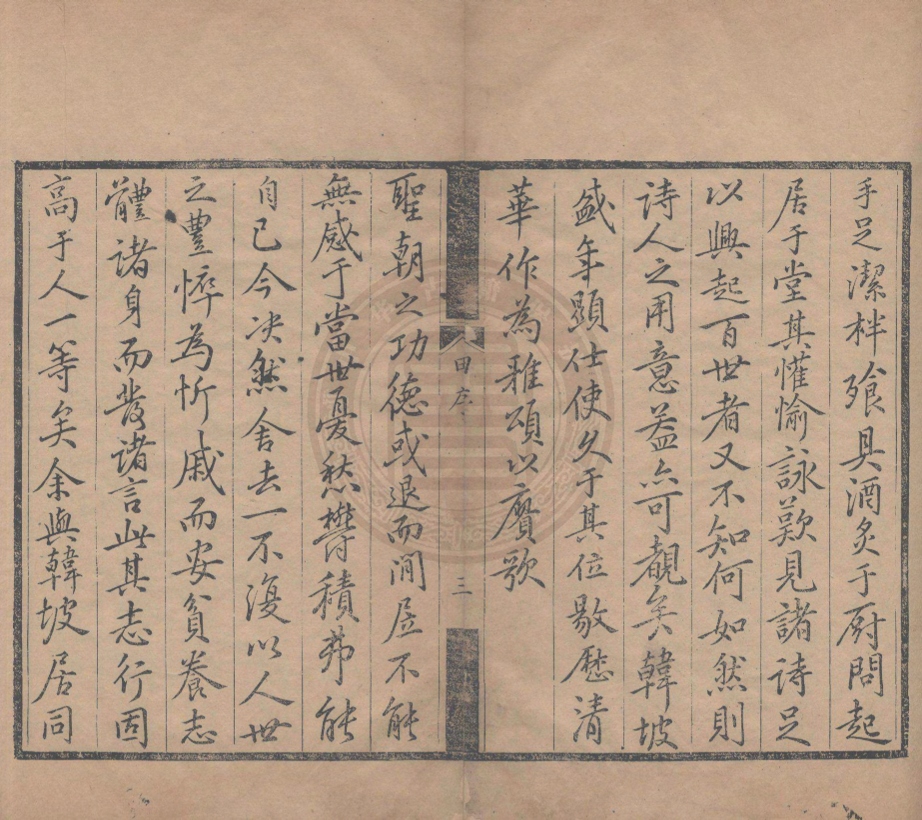 手足潔柈飱具酒炙于厨問起
居于堂其懽愉詠歎見諸诗足
以興起百世者又不知何如然則
诗人之用意益亦可覩矣韓坡
盛年顕仕使久于其位敭歷清
華作為雅頌以賡歌
田序
三
聖朝之功德或退而閒居不能
無感于當世憂愁欝積弗能
自已今决然舍去一不復以人世
之豐悴為忻戚而安貧養志
體諸身而發諸言此其志行固
高于人一等矣余與韓坡居同